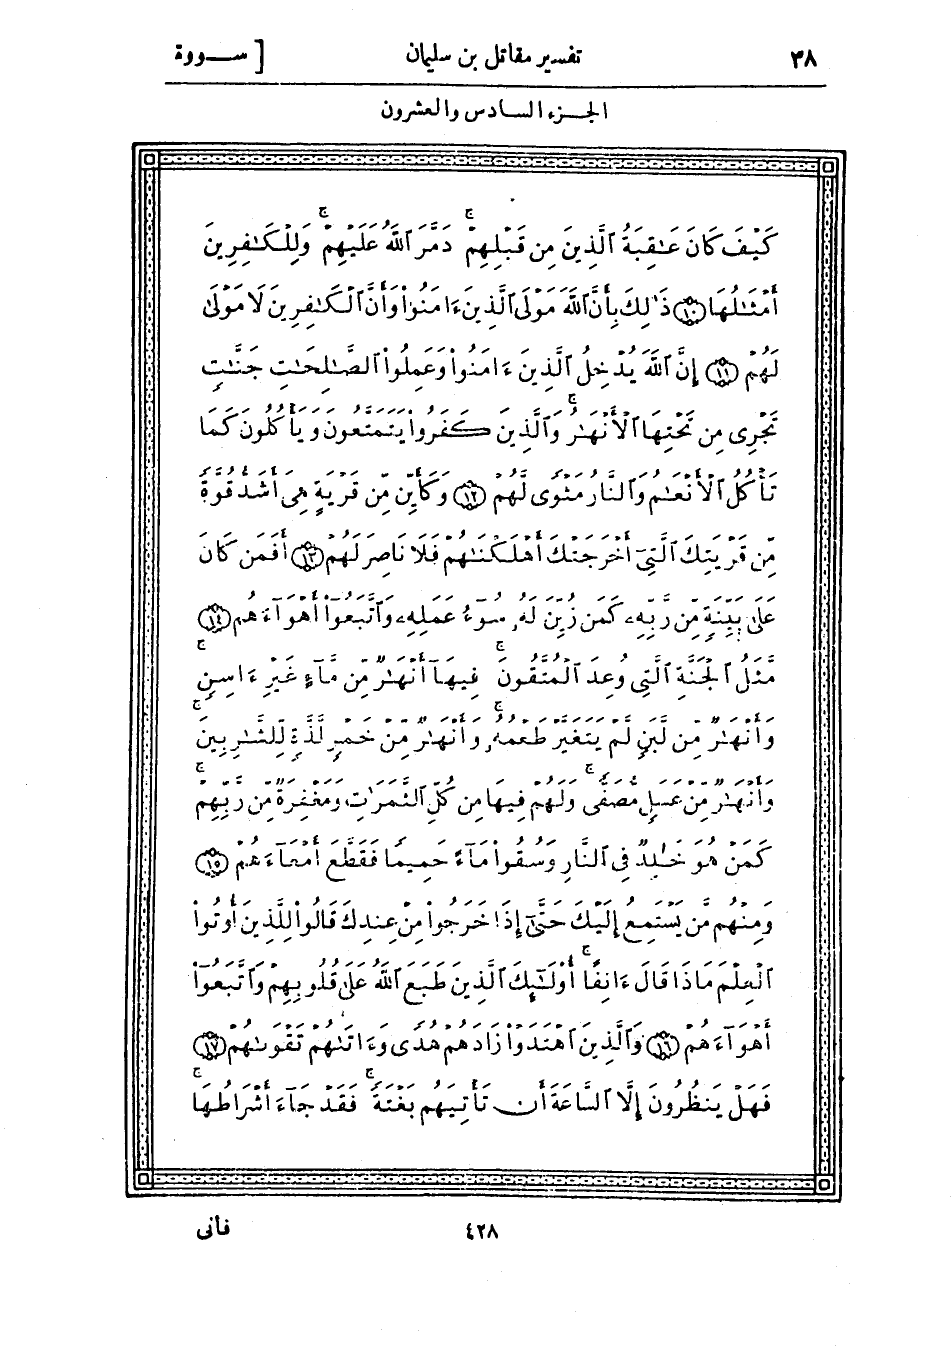 ٣٨ تفسير مقاتل بن سليمان [ ســورة
الجـزء السادس والعشرون
كَيْفَ كَانَ عَـٰقِبَةُ ٱلَّذِينَ مِن قَبْلِهِمْ ۚ دَمَّرَ ٱللَّهُ عَلَيْهِمْ ۚ وَلِلْكَـٰفِرِينَ
أَمْثَـٰلُهَا ﴿١٠﴾ ذَٰلِكَ بِأَنَّ ٱللَّهَ مَوْلَى ٱلَّذِينَ ءَامَنُوا۟ وَأَنَّ ٱلْكَـٰفِرِينَ لَا مَوْلَىٰ
لَهُمْ ﴿١١﴾ إِنَّ ٱللَّهَ يُدْخِلُ ٱلَّذِينَ ءَامَنُوا۟ وَعَمِلُوا۟ ٱلصَّـٰلِحَـٰتِ جَنَّـٰتٍ
تَجْرِى مِن تَحْتِهَا ٱلْأَنْهَـٰرُ ۚ وَٱلَّذِينَ كَفَرُوا۟ يَتَمَتَّعُونَ وَيَأْكُلُونَ كَمَا
تَأْكُلُ ٱلْأَنْعَـٰمُ وَٱلنَّارُ مَثْوًى لَّهُمْ ﴿١٢﴾ وَكَأَيِّن مِّن قَرْيَةٍ هِىَ أَشَدُّ قُوَّةً
مِّن قَرْيَتِكَ ٱلَّتِىٓ أَخْرَجَتْكَ أَهْلَكْنَـٰهُمْ فَلَا نَاصِرَ لَهُمْ ﴿١٣﴾ أَفَمَن كَانَ
عَلَىٰ بَيِّنَةٍ مِّن رَّبِّهِۦ كَمَن زُيِّنَ لَهُۥ سُوٓءُ عَمَلِهِۦ وَٱتَّبَعُوٓا۟ أَهْوَآءَهُم ﴿١٤﴾
مَّثَلُ ٱلْجَنَّةِ ٱلَّتِى وُعِدَ ٱلْمُتَّقُونَ ۚ فِيهَآ أَنْهَـٰرٌ مِّن مَّآءٍ غَيْرِ ءَاسِنٍ ۚ
وَأَنْهَـٰرٌ مِّن لَّبَنٍ لَّمْ يَتَغَيَّرْ طَعْمُهُۥ ۚ وَأَنْهَـٰرٌ مِّنْ خَمْرٍ لَّذَّةٍ لِّلشَّـٰرِبِينَ ۚ
وَأَنْهَـٰرٌ مِّنْ عَسَلٍ مُّصَفًّى ۚ وَلَهُمْ فِيهَا مِن كُلِّ ٱلثَّمَرَٰتِ وَمَغْفِرَةٌ مِّن رَّبِّهِمْ ۚ
كَمَنْ هُوَ خَـٰلِدٌ فِى ٱلنَّارِ وَسُقُوا۟ مَآءً حَمِيمًا فَقَطَّعَ أَمْعَآءَهُمْ ﴿١٥﴾
وَمِنْهُم مَّن يَسْتَمِعُ إِلَيْكَ حَتَّىٰٓ إِذَا خَرَجُوا۟ مِنْ عِندِكَ قَالُوا۟ لِلَّذِينَ أُوتُوا۟
ٱلْعِلْمَ مَاذَا قَالَ ءَانِفًا ۚ أُو۟لَـٰٓئِكَ ٱلَّذِينَ طَبَعَ ٱللَّهُ عَلَىٰ قُلُوبِهِمْ وَٱتَّبَعُوٓا۟
أَهْوَآءَهُمْ ﴿١٦﴾ وَٱلَّذِينَ ٱهْتَدَوْا۟ زَادَهُمْ هُدًى وَءَاتَىٰهُمْ تَقْوَىٰهُمْ ﴿١٧﴾
فَهَلْ يَنظُرُونَ إِلَّا ٱلسَّاعَةَ أَن تَأْتِيَهُم بَغْتَةً ۚ فَقَدْ جَآءَ أَشْرَاطُهَا ۚ
٤٢٨ فأنى